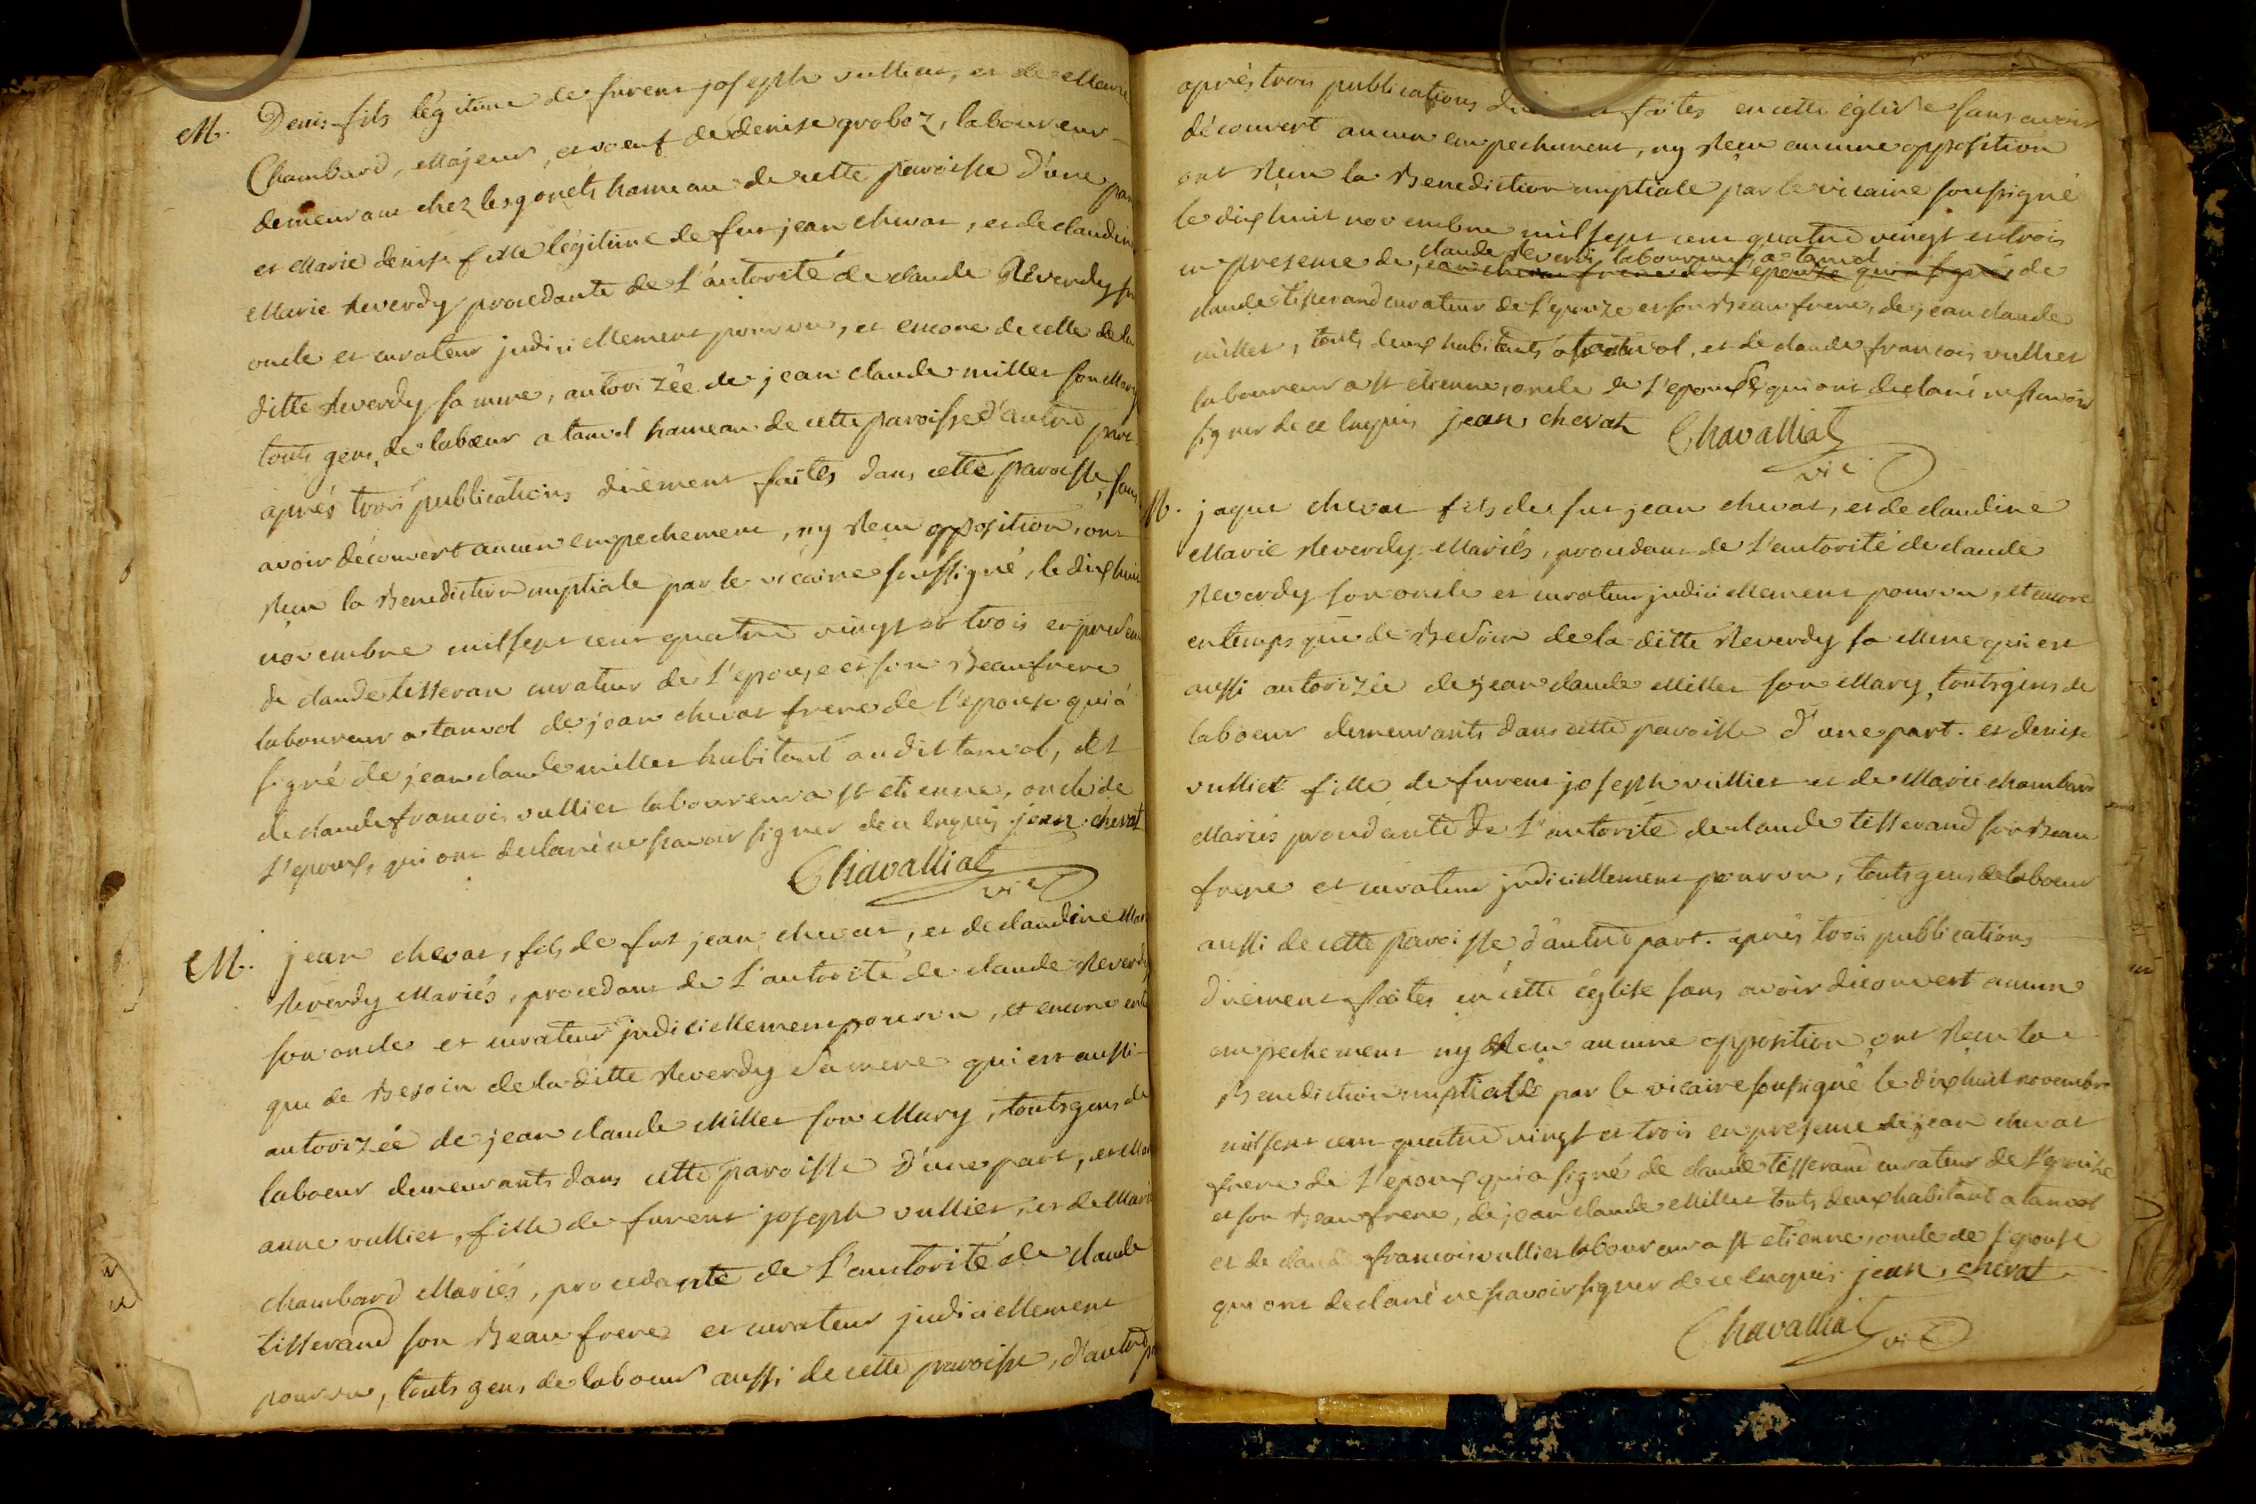 M. Denis fils légitime de furent joseph vulliet, et de Marie
Chambard, Majeur, et voeuf de denise groboz, laboureur
demeurant chez les gonets hameau de cette paroisse d'une part
et Marie denise fille légitime de fut jean chevat, et de claudine
Marie Reverdy procedante de l'autorité de claude Reverdy son
oncle et curateur judiciellement pourvu, et encore de celle de la
ditte Reverdy sa mere, autorizée de jean claude millet son Mary
touts gens de laboeur a tanvol hameau de cette paroisse d'autre part
aprés trois publications düement faites dans cette paroisse, sans
avoir découvert aucun empechement, ny Reçu opposition, ont
Reçu la Benediction nuptiale par le vicaire soussigné, le dix huit
novembre mil sept cent quatre vingt et trois en presence
de claude tisseran curateur de l'epouse et son Beaufrere
laboureur a tanvol de jean chevat frere de l'epouse qui a
signé de jean claude millet habitant audit tanvol, et
de claude francois vulliet laboureur a st etienne, oncle de
l'epoux, qui ont declaré ne scavoir signer de ce enquis jean chevat
Chavalliat
vic
M. jean chevat, fils de fut jean chevat, et de claudine Marie
Reverdy Mariés, procedant de l'autorité de claude Reverdy
son oncle et curateur judiciellement pourvu, et encore en tems
que de Besoin de la ditte Reverdy sa mere qui est aussi
autorizée de jean claude Millet son Mary, touts gens de
laboeur demeurants dans cette paroisse d'une part, et Marie
anne vulliet, fille de furent joseph vulliet, et de Marie
chambard Mariés, procedante de l'autorité de claude
tisserand son Beau frere et curateur judiciellement
pourvu, touts gens de laboeur aussi de cette paroisse, d'autre part
aprés trois publications düement faites en cette église sans avoir
découvert aucun empechement, ny Reçu aucune opposition
ont Reçu la Benediction nuptiale par le vicaire soussigné
le dix huit novembre mil sept cent quatre vingt et trois
claude Reverdi laboureur a tanvol
en presence de jean chevat frere de l'epouse qui a signé de
claude tisserand curateur de l'epouze et son Beau frere, de jean claude
millet, touts deux habitants a tanvol, et de claude francois vulliet
laboureur a st étienne, oncle de l'epouse qui ont declaré ne scavoir
signer de ce enquis jean chevat Chavalliat
vic
M. jaque chevat fils de fut jean chevat, et de claudine
Marie Reverdy Mariés, procedant de l'autorité de claude
Reverdy son oncle et curateur judiciellement pourvu, et encore
en temps que de Besoin de la ditte Reverdy sa Mere qui est
aussi autorizée de jean claude Millet son Mary, touts gens de
laboeur demeurants dans cette paroisse d'une part. et denise
vulliet fille de furent joseph vulliet et de Marie chambard
Mariés procedante de l'autorité de claude tisserand son Beau
frere et curateur judiciellement pourvu, touts gens de laboeur
aussi de cette paroisse, d'autre part. aprés trois publications
düement faites en cette église sans avoir découvert aucun
empechement ny Reçu aucune opposition ont Reçu la
Benediction nuptiale par le vicaire sousigné le dix huit novembre
mil sept cent quatre vingt et trois en presence de jean chevat
frere de l'epoux qui a signé de claude tisserand curateur de l'epouse
et son Beau frere, de jean claude Millet touts deux habitant a tanvol
et de claude francois vulliet laboureur a st etienne oncle de l'epouse
qui ont declaré ne scavoir signer de ce enquis jean chevat
Chavalliat vic